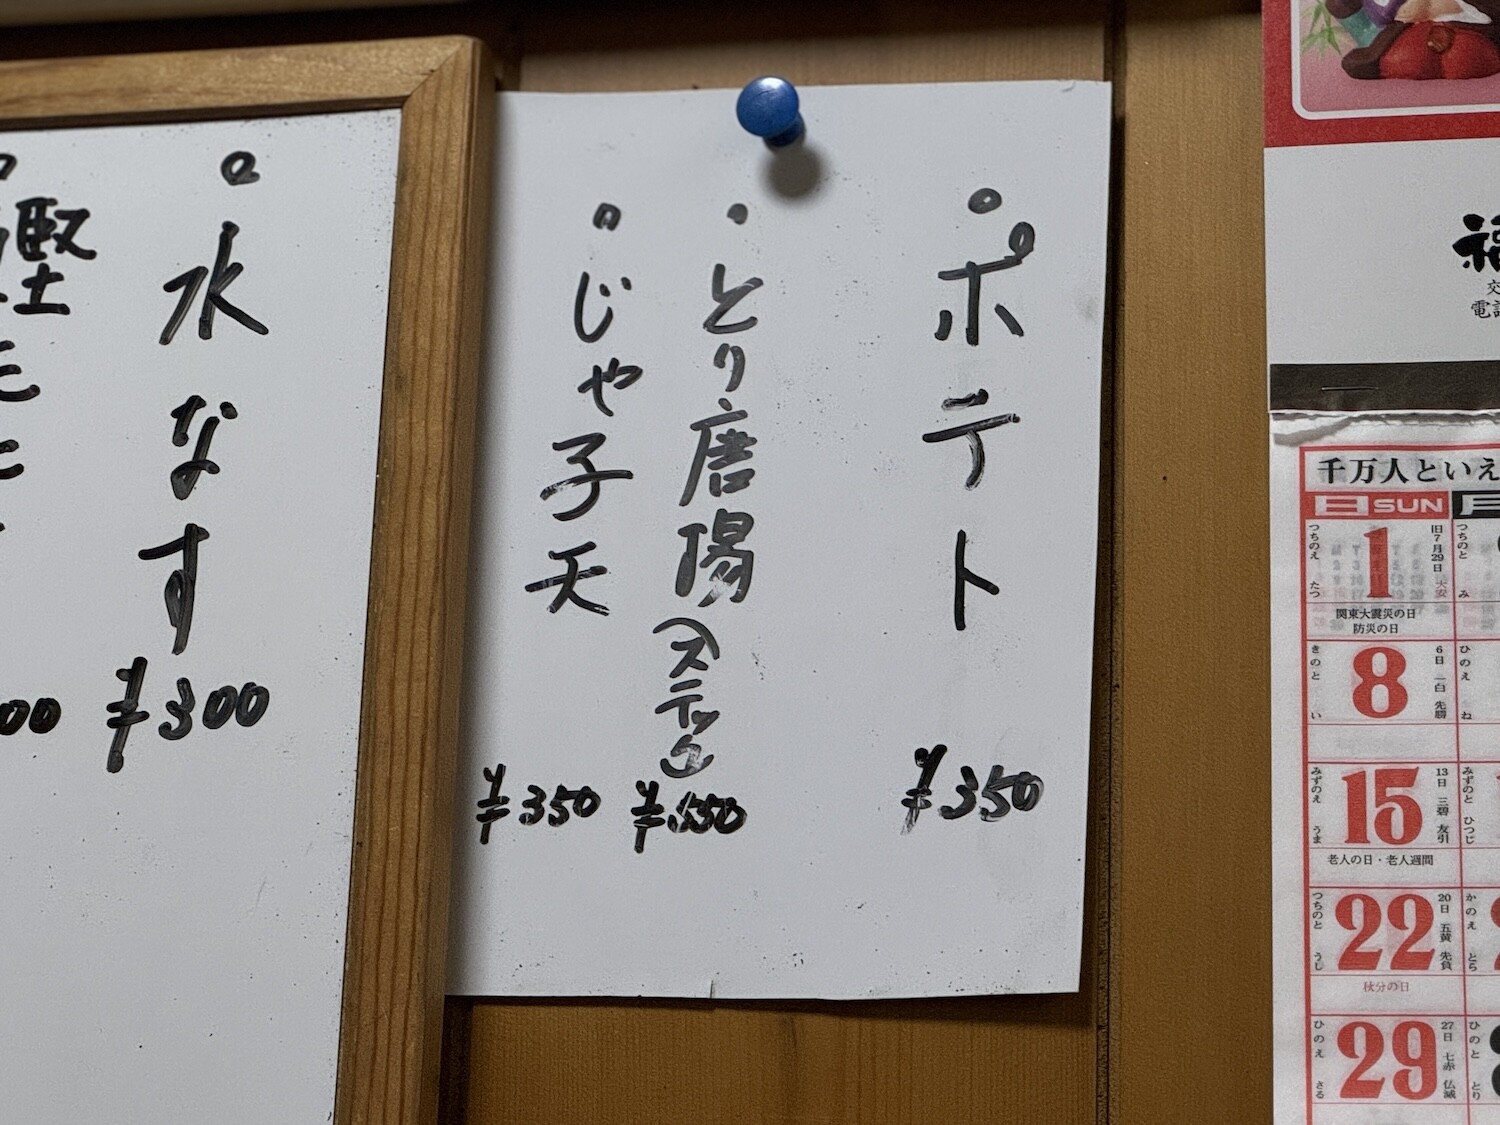 ポテト ¥350
とり唐揚(スティック) ¥550
じゃ子天 ¥350
水なす ¥300
千万人といえ
日 SUN
1
旧7月29日
つちのえ たつ
関東大震災の日
防災の日
8
6日 一白 先勝
きのと い
15
13日 三碧 友引
みずのえ うま
老人の日・老人週間
22
20日 五黄 先負
つちのと うし
秋分の日
29
27日 七赤 仏滅
ひのえ さる
つちのと み
ひのえ ね
みずのと ひつじ
かのえ とら
ひのと とり